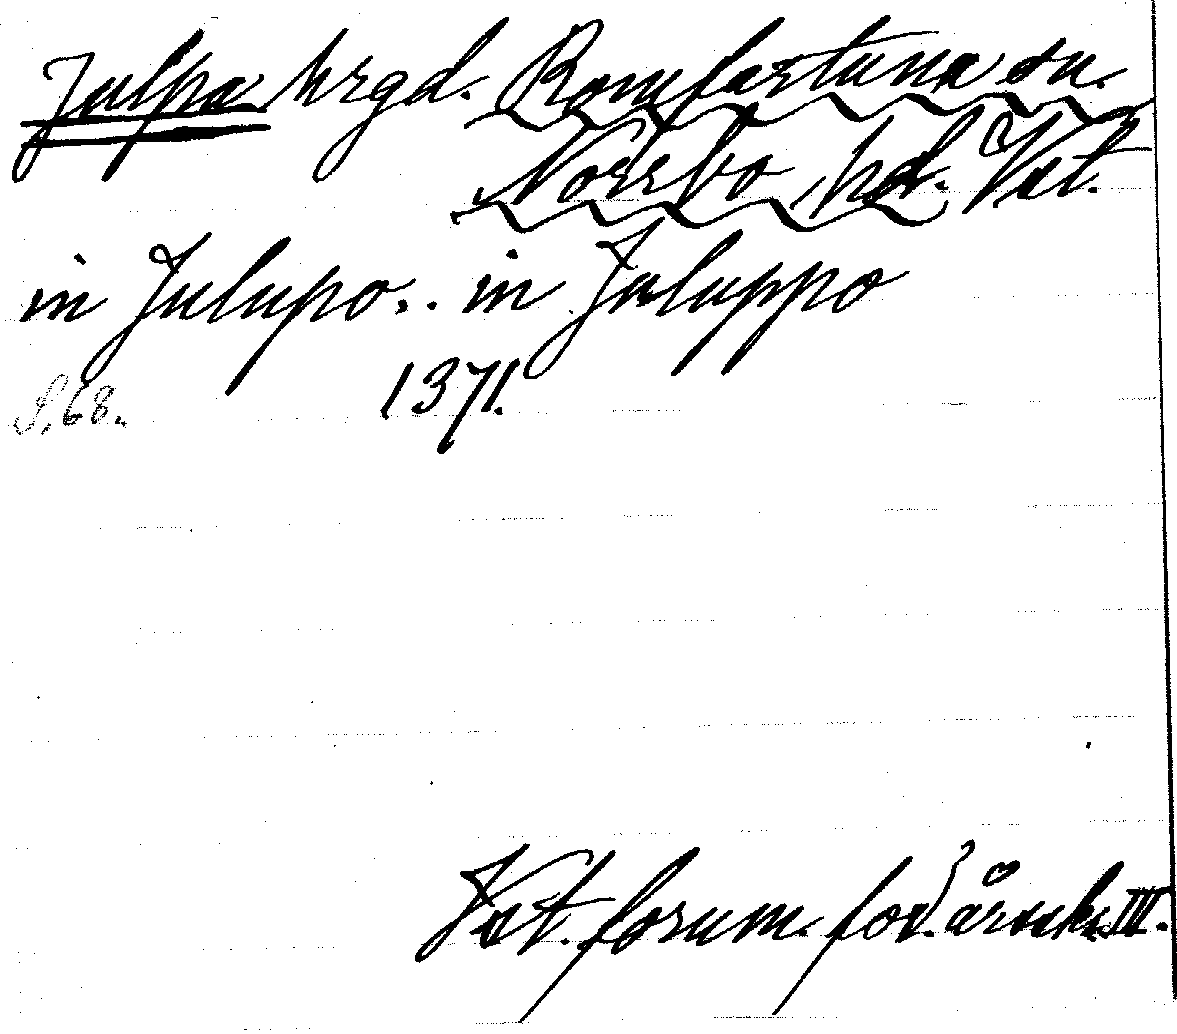 Julpa hrgd. Romfartuna sn.
Norrbo hd. Vstl.
in Julupo. . in Juluppo
S. 68. 1371.
Vstl. fornm. för. årsskr. III.